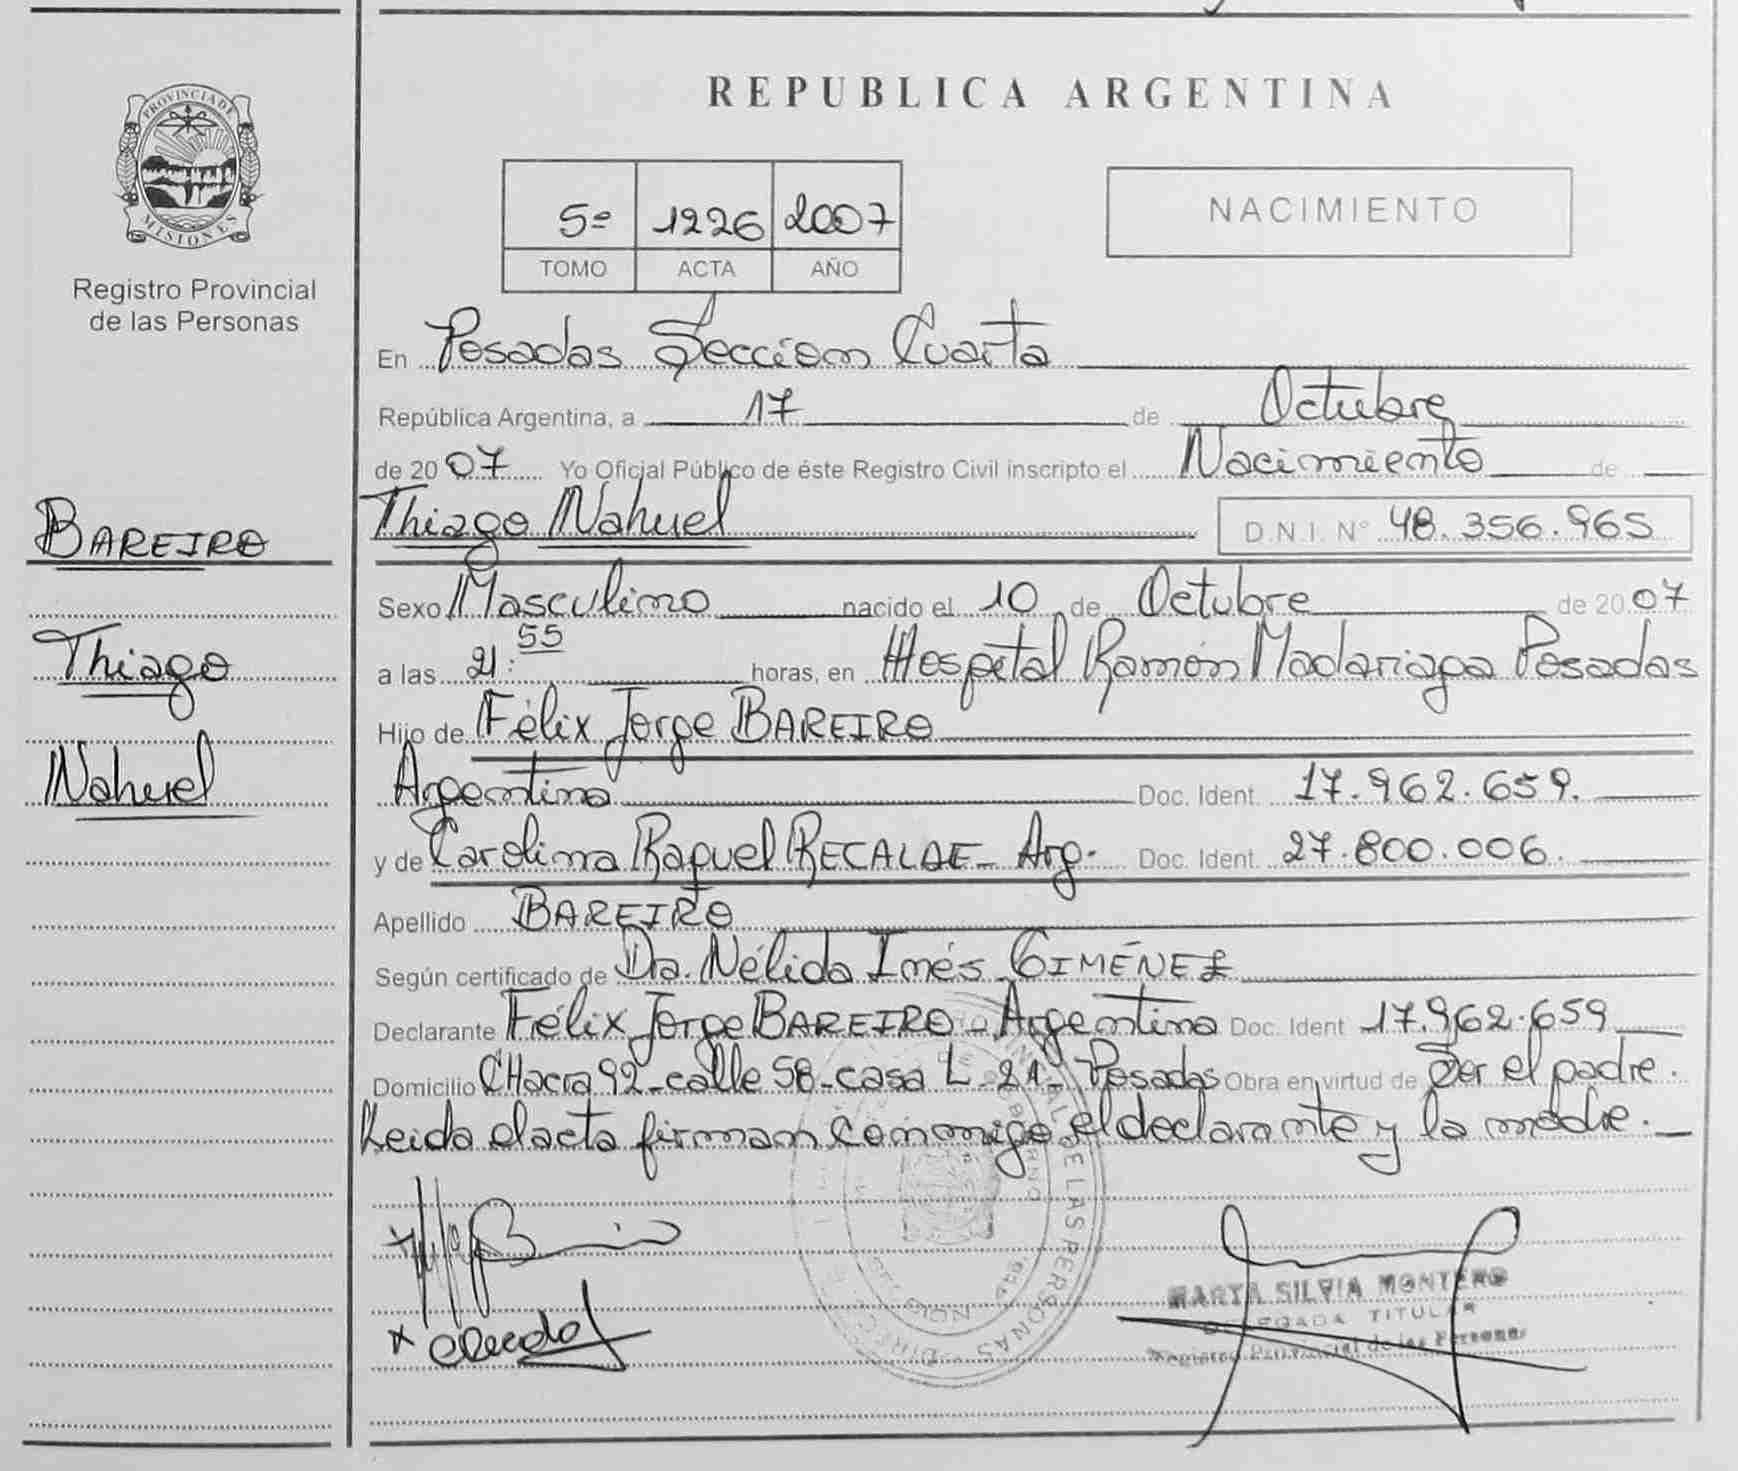 PROVINCIA DE
MISIONES
Registro Provincial
de las Personas
BAREIRO
Thiago
Nahuel
REPUBLICA ARGENTINA
5º 1226 2007
TOMO ACTA AÑO
NACIMIENTO
En Posadas Sección Cuarta
República Argentina, a 17 de Octubre
de 2007 Yo Oficial Público de éste Registro Civil inscripto el Nacimiento de
Thiago Nahuel D.N.I. Nº 48.356.965
Sexo Masculino nacido el 10 de Octubre de 2007
a las 21:55 horas, en Hospital Ramón Madariaga Posadas
Hijo de Félix Jorge BAREIRO
Argentino Doc. Ident. 17.962.659.
y de Carolina Raquel RECALDE - Arg. Doc. Ident. 27.800.006.
Apellido BAREIRO
Según certificado de Dra. Nélida Inés GIMÉNEZ
Declarante Félix Jorge BAREIRO - Argentino Doc. Ident 17.962.659
Domicilio CHacra 92 - calle 58 - casa L - 21 - Posadas Obra en virtud de Ser el padre.
Leida el acta firman conmigo el declarante y la madre.
MARTA SILVIA MONTERO
DELEGADA TITULAR
Registro Provincial de las Personas